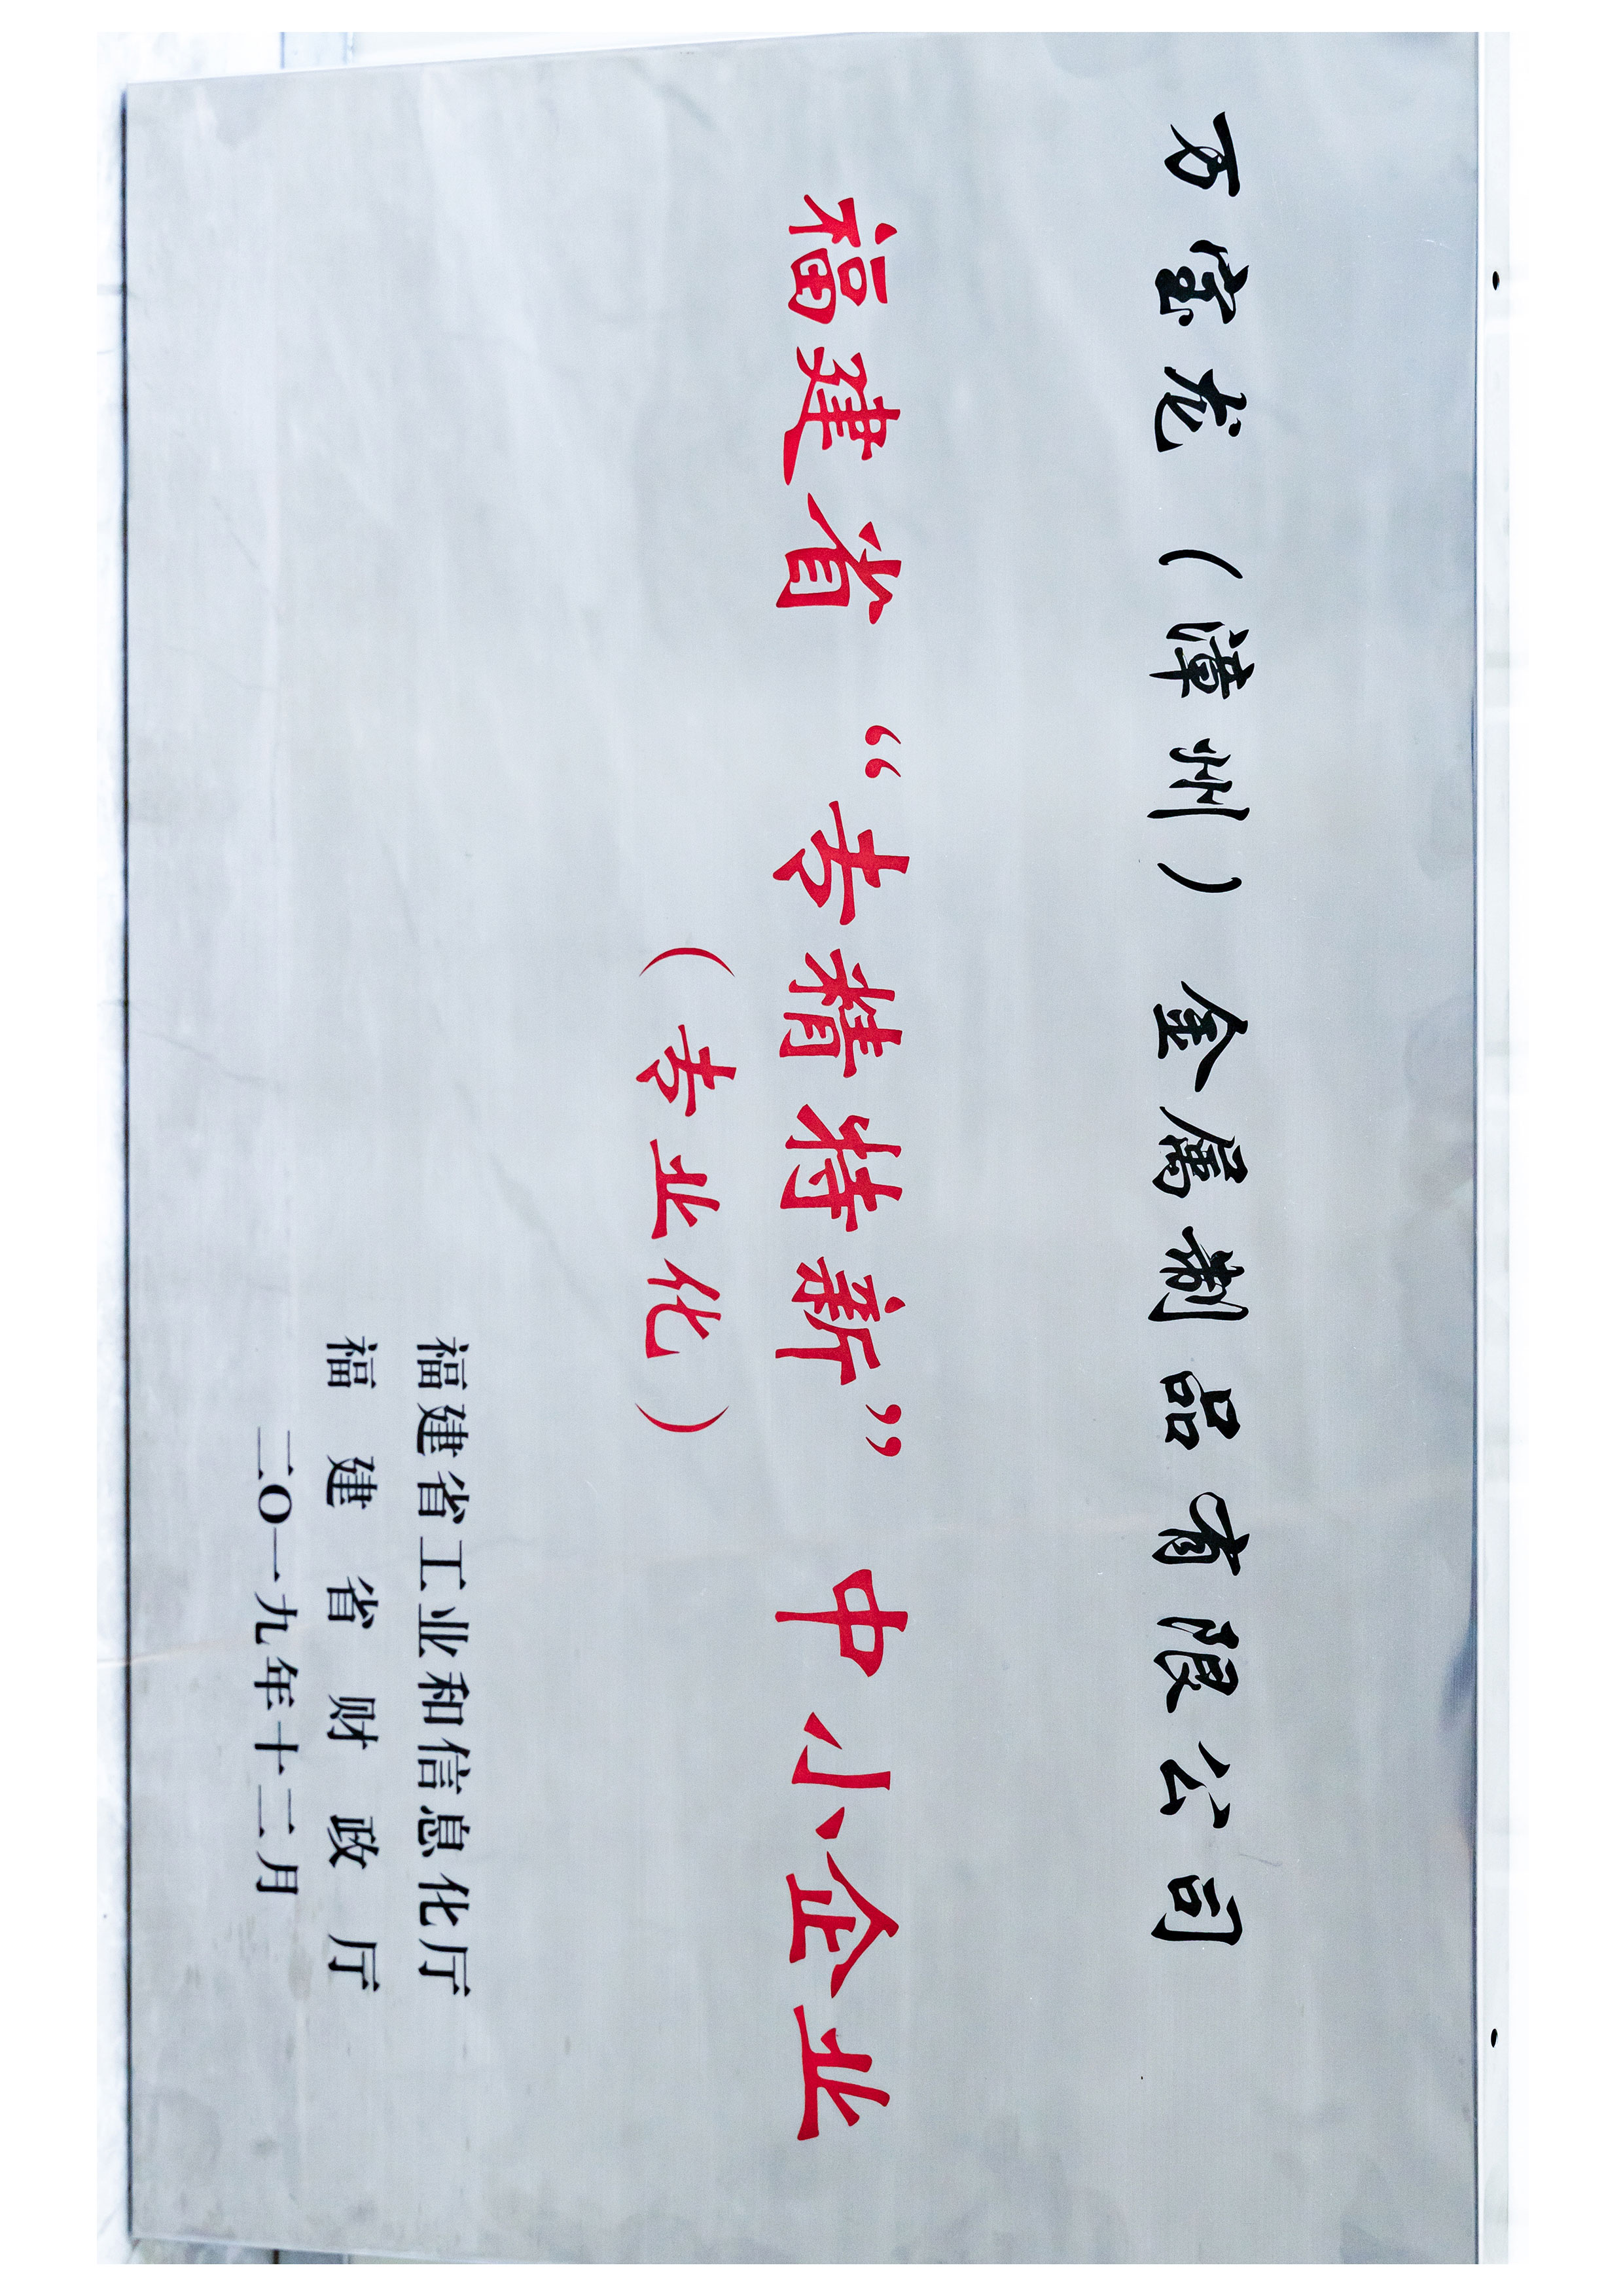 万宝龙（漳州）金属制品有限公司
福建省“专精特新”中小企业
（专业化）
福建省工业和信息化厅
福建省财政厅
二O一九年十二月